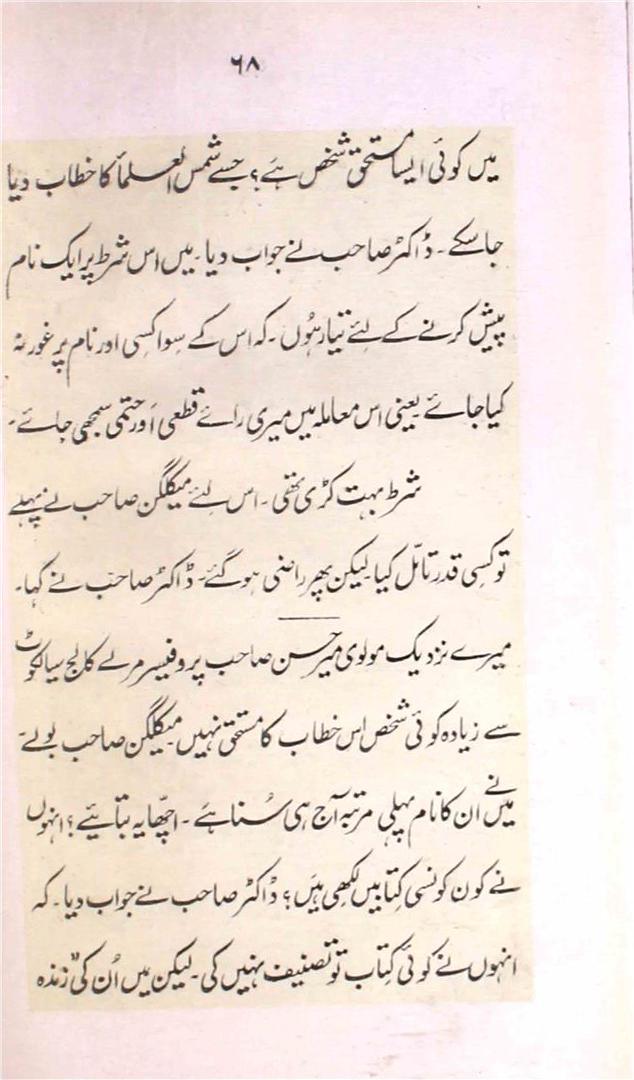 ۶۸
میں کوئی ایسا مستحق شخص ہے؟ جسے شمس العلماؑ کا خطاب دیا
جاسکے۔ ڈاکٹر صاحب نے جواب دیا۔ میں اس شرط پر ایک نام
پیش کرنے کے لئے تیار ہُوں۔ کہ اس کے سِوا کسی اور نام پر غور نہ
کیا جائے یعنی اس معاملہ میں میری رائے قطعی اَور حتمی سمجھی جائے۔
شرط بہت کڑی تھی۔ اس لئے میکلگن صاحب نے پہلے
تو کسی قدر تامّل کیا لیکن پھر راضی ہوگئے۔ ڈاکٹر صاحب نے کہا۔
میرے نزدیک مولوی میر حسن صاحب پروفیسر مرلے کالج سیالکوٹ
سے زیادہ کوئی شخص اس خطاب کا مستحق نہیں میکلگن صاحب بولے۔
میں نے ان کا نام پہلی مرتبہ آج ہی سُنا ہے۔ اچّھا یہ بتائیے؟ انہوں
نے کون کونسی کتابیں لکھی ہیں؟ ڈاکٹر صاحب نے جواب دیا۔ کہ
انہوں نے کوئی کتاب تو تصنیف نہیں کی۔ لیکن میں اُن کی "زندہ